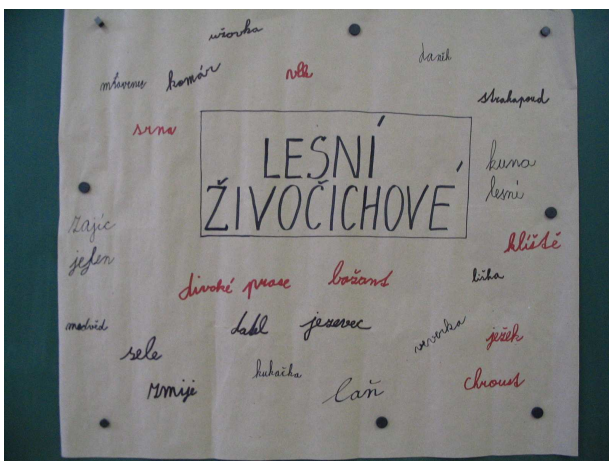 užovka
daněk
mravenec
komár
vlk
strakapoud
srna
LESNÍ
ŽIVOČICHOVÉ
kuna
lesní
zajíc
jelen
klíště
divoké prase
bažant
liška
medvěd
datel
jezevec
veverka
ježek
sele
zmije
kukačka
laň
chroust